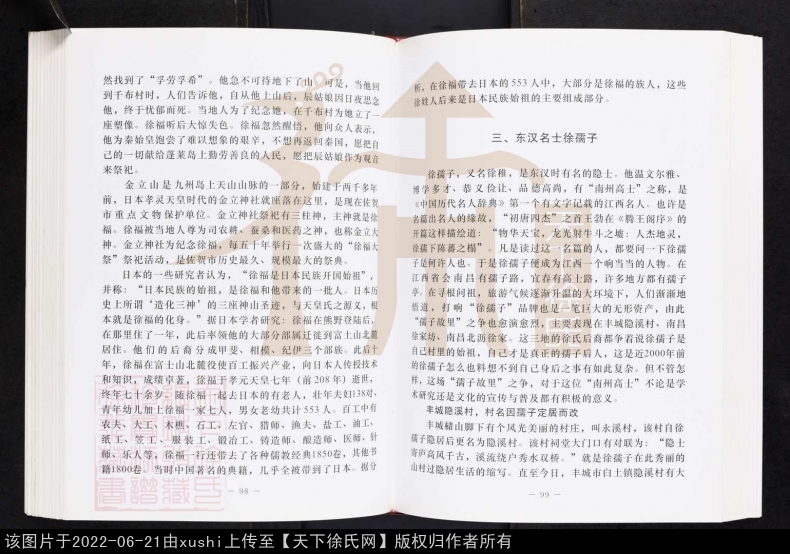 然找到了“孚劳孚希”。他急不可待地下了山，可是，当他回
到千布村时，人们告诉他，自从他上山后，辰姑娘因日夜思念
他，终于忧郁而死。当地人为了纪念她，在千布村为她立了一
座塑像。徐福听后大惊失色。徐福忽然醒悟，他向众人表示，
他为秦始皇饱尝了难以想象的艰辛，不想再返回秦国，愿把自
己的一切献给蓬莱岛上勤劳善良的人民，愿把辰姑娘作为观音
来祭祀。
金立山是九州岛上天山山脉的一部分，始建于两千多年
前，日本孝灵天皇时代的金立神社就座落在这里，是现在佐贺
市重点文物保护单位。金立神社祭祀有三柱神，主神就是徐
福。徐福被当地人尊为司农耕、蚕桑和医药之神，也称金立大
神。金立神社为纪念徐福，每五十年举行一次盛大的“徐福大
祭”祭祀活动，是佐贺市历史最久、规模最大的祭典。
日本的一些研究者认为，“徐福是日本民族开国始祖”，
并称：“日本民族的始祖，是徐福和他带来的一批人。日本历
史上所谓‘造化三神’的三座神山圣迹，与天皇氏之源义，根
本就是徐福的化身。”据日本学者研究：徐福在熊野登陆后，
在那里住了一年，此后率领他的大部分部属迁徙到富士山北麓
居住。他们的后裔分成甲斐、相模、纪伊三个部族。此后十
年，徐福在富士山北麓投使百工振兴产业，向日本人传授技术
和知识，成绩卓著，徐福于孝元天皇七年（前208年）逝世，
终年七十余岁。随徐福一起去日本的有老人，壮年夫妇138对，
青年幼儿加上徐福一家七人，男女老幼共计553人。百工中有
农夫、大工、木樵、石工、左官、猎师、渔夫、盐工、油工、
纸工、笠工、服装工、锻冶工、铸造师、酿造师、医师、针
师、乐人等，徐福一行还带去了各种儒教经典1850卷，其他书
籍1800卷。当时中国著名的典籍，几乎全被带到了日本。据分
— 98 —
析，在徐福带去日本的553人中，大部分是徐福的族人，这些
徐姓人后来是日本民族始祖的主要组成部分。
三、东汉名士徐孺子
徐孺子，又名徐稚，是东汉时有名的隐士。他温文尔雅、
博学多才、恭义俭让、品德高尚，有“南州高士”之称，是
《中国历代名人辞典》第一个有文字记载的江西名人。也许是
名篇出名人的缘故，“初唐四杰”之首王勃在《腾王阁序》的
开篇这样描绘道：“物华天宝，龙光射牛斗之墟；人杰地灵，
徐孺下陈蕃之榻”。凡是读过这一名篇的人，都要问一下徐孺
子是何许人也。于是徐孺子便成为江西一个响当当的人物。在
江西省会南昌有孺子路，宜春有高士路，许多地方都有孺子
亭。在寻根问祖，旅游气候逐渐升温的大环境下，人们渐渐地
悟道，打响“徐孺子”品牌也是一笔巨大的无形资产，由此
“孺子故里”之争也愈演愈烈，主要表现在丰城隐溪村、南昌
徐家坊、南昌北沥徐家。这三地的徐氏后裔都争着说徐孺子是
自己村里的始祖，自己才是真正的孺子后人，这是近2000年前
的徐孺子怎么也料想不到自己身后之事有如此复杂。但不管怎
样，这场“孺子故里”之争，对于这位“南州高士”不论是学
术研究还是文化的宣传与普及都有积极的意义。
丰城隐溪村，村名因孺子定居而改
丰城槠山脚下有个风光美丽的村庄，叫永溪村，该村自徐
孺子隐居后更名为隐溪村。该村祠堂大门口有对联为：“隐士
寄庐高风千古，溪流绕户秀水双桥。”就是徐孺子在此秀丽的
山村过隐居生活的缩写。直至今日，丰城市白土镇隐溪村有大
— 99 —
该图片于2022-06-21由xushi上传至【天下徐氏网】版权归作者所有